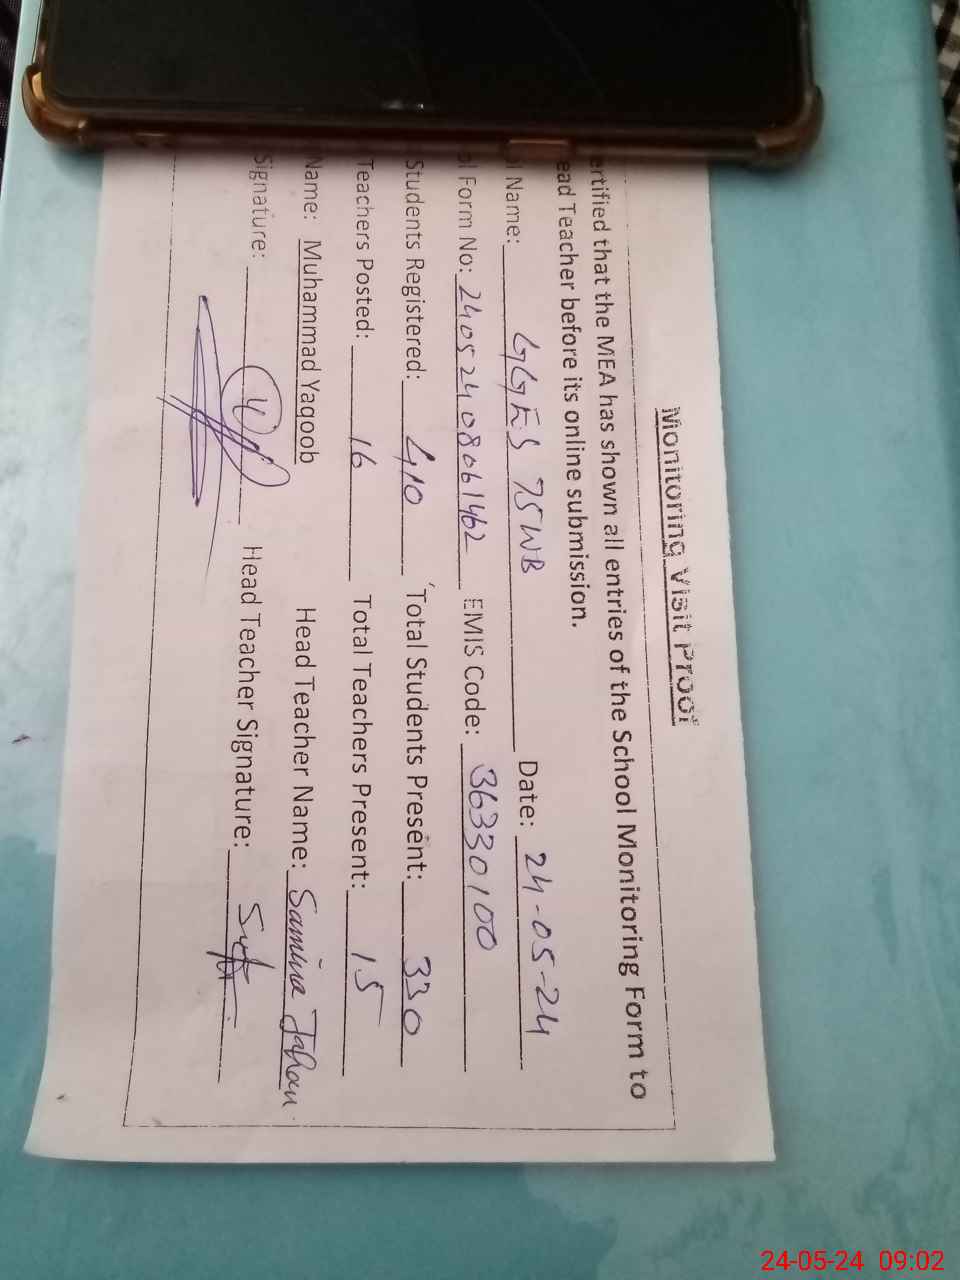 Monitoring Visit Proof
ertified that the MEA has shown all entries of the School Monitoring Form to
ead Teacher before its online submission.
l Name: GGES 75WB Date: 24-05-24
al Form No: 24052408061462 EMIS Code: 36330100
Students Registered: 410 Total Students Present: 330
Teachers Posted: 16 Total Teachers Present: 15
Name: Muhammad Yaqoob Head Teacher Name: Samina Jahan
Signature: Head Teacher Signature:
24-05-24 09:02